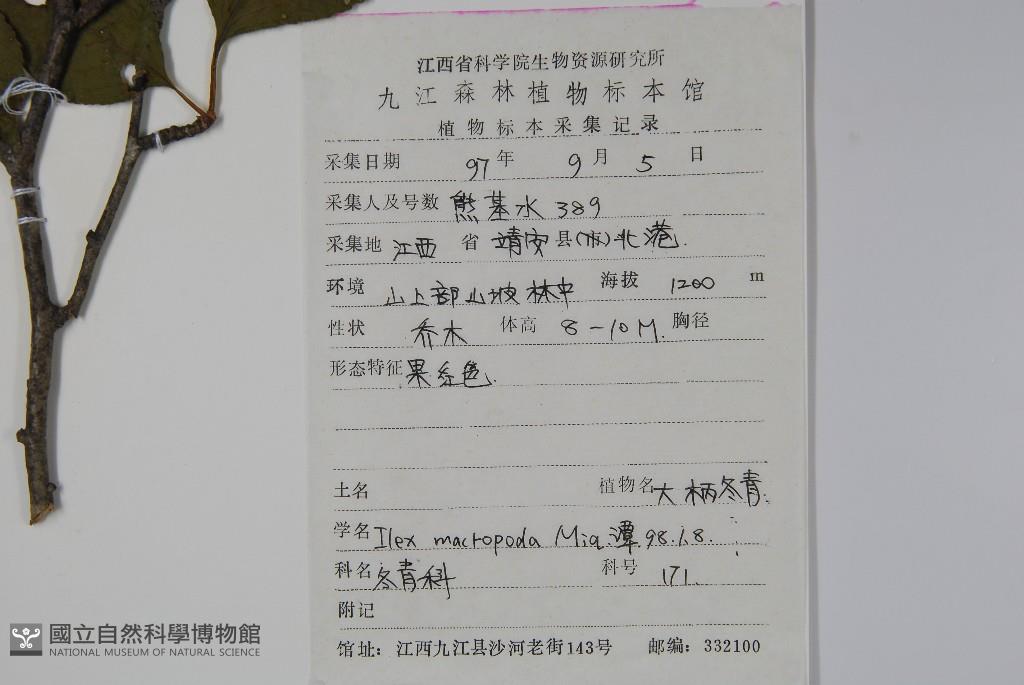 江西省科学院生物资源研究所
九江森林植物标本馆
植物标本采集记录
采集日期 97年 9月 5日
采集人及号数 熊基水 389
采集地 江西 省 靖安县(市)北港
环境 山上部山坡林中 海拔 1200 m
性状 乔木 体高 8-10M. 胸径
形态特征 果红色.
土名 植物名 大柄冬青.
学名 Ilex macropoda Miq. 潭 98.1.8.
科名 冬青科 科号 171.
附记
馆址: 江西九江县沙河老街143号 邮编: 332100
國立自然科學博物館
NATIONAL MUSEUM OF NATURAL SCIENCE